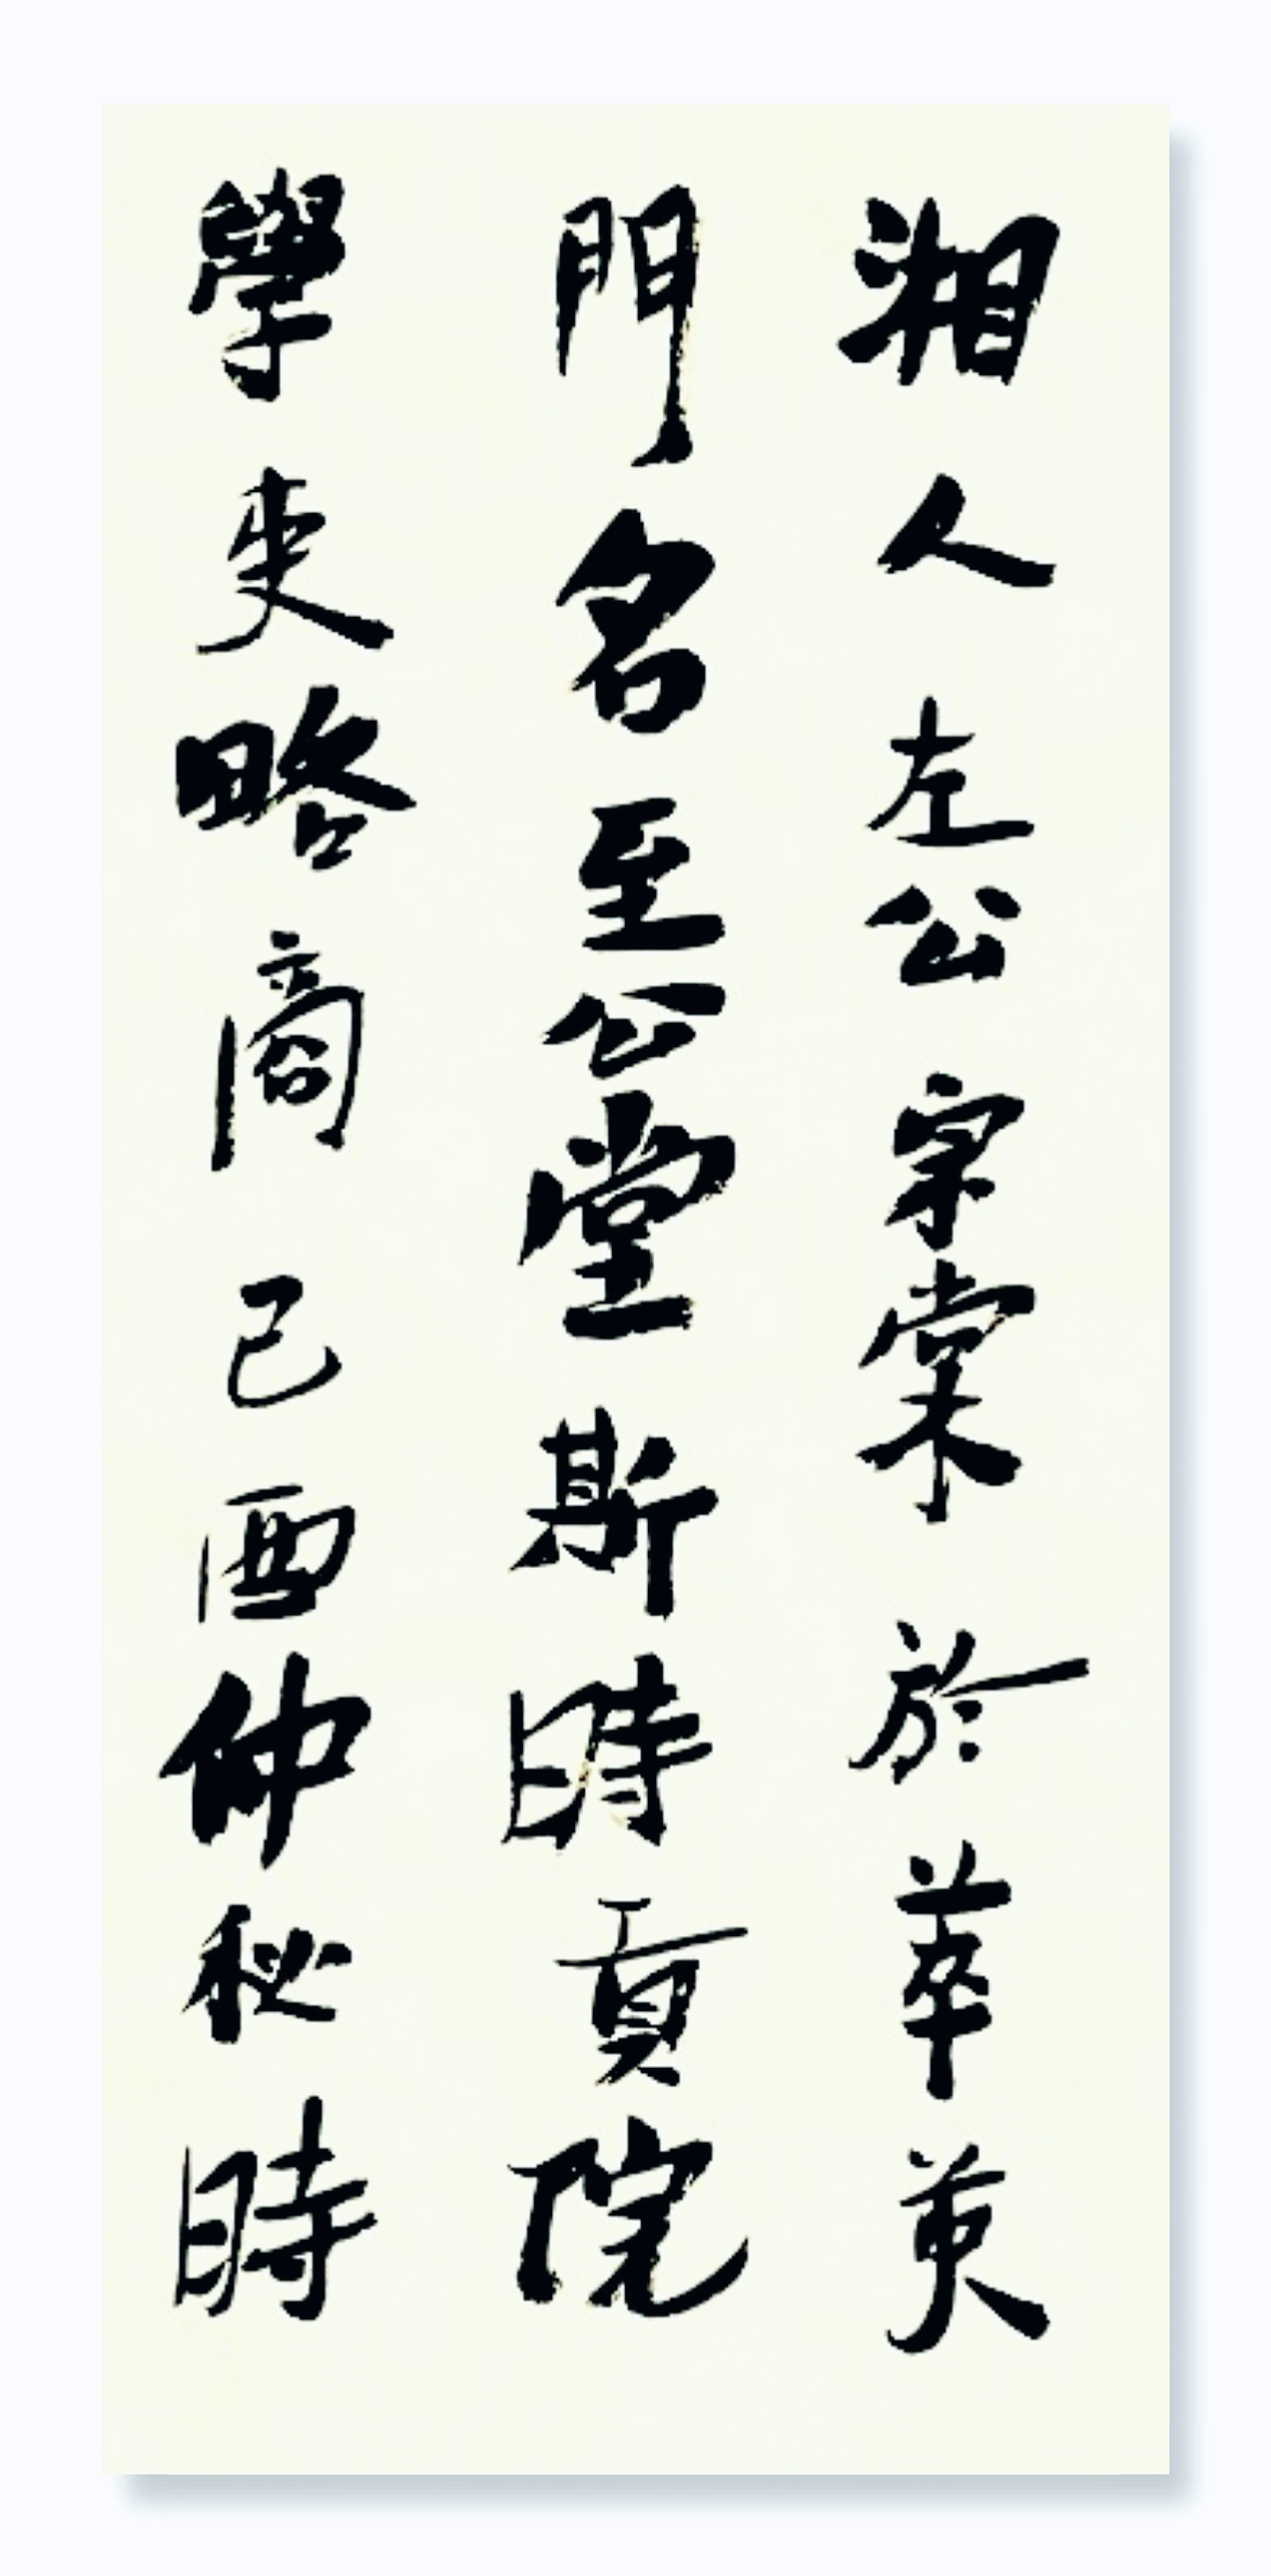 湘人左公宗棠於萃英
門名至公堂斯時貢院
學吏略商己酉仲秋時